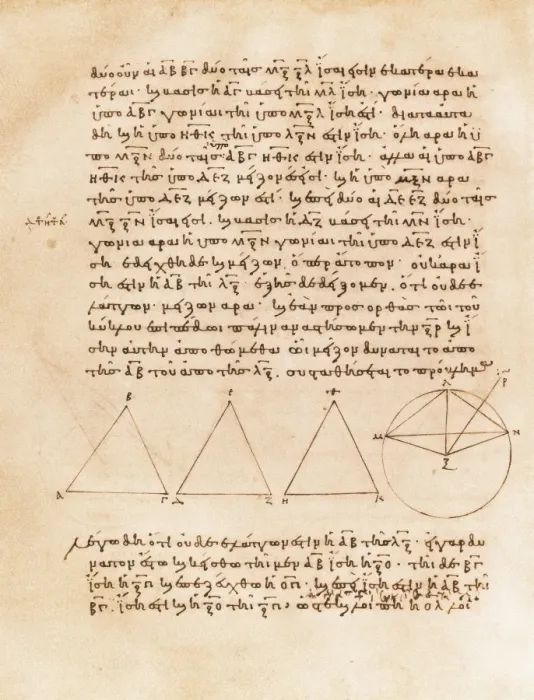 δύο οὖν αἱ ΑΒ ΒΓ δύο ταῖς ΜΞ ΞΛ ἴσαι εἰσὶν ἑκατέρα ἑκα
τέραι · καὶ βάσις ἡ ΑΓ βάσει τῆι ΜΛ ἴση · γωνία ἄρα ἡ
ὑπὸ ΑΒΓ γωνίαι τῆι ὑπὸ ΜΞΛ ἴση ἐστί · διὰ τὰ αὐτὰ
δὴ καὶ ἡ ὑπὸ ΗΘΚ τῆι ὑπὸ ΛΞΝ ἐστὶν ἴση · ὅλη ἄρα ἡ ὑ
πὸ ΜΞΝ δύο ταῖς ὑπὸ ΑΒΓ ΗΘΚ ἐστὶν ἴση · ἀλλὰ αἱ ὑπὸ ΑΒΓ
ΗΘΚ τῆς ὑπὸ ΔΕΖ μείζονές εἰσι · καὶ ἡ ὑπὸ ΜΞΝ ἄρα
τῆς ὑπὸ ΔΕΖ μείζων ἐστί · καὶ ἐπεὶ δύο αἱ ΔΕ ΕΖ δύο ταῖς
ΜΞ ΞΝ ἴσαι εἰσί · καὶ βάσις ἡ ΔΖ βάσει τῆι ΜΝ ἴση ·
γωνία ἄρα ἡ ὑπὸ ΜΞΝ γωνίαι τῆι ὑπὸ ΔΕΖ ἐστὶν ἴ
ση · ἐδείχθη δὲ καὶ μείζων, ὅπερ ἄτοπον · οὐκ ἄρα ἴ
ση ἐστὶν ἡ ΑΒ τῆι ΛΞ · ἑξῆς δὲ δείξομεν, ὅτι οὐδὲ ἐ
λάττων · μείζων ἄρα · καὶ ἐὰν πρὸς ὀρθὰς τῶι τοῦ
κύκλου ἐπιπέδωι πάλιν ἀναστήσωμεν τὴν ΞΡ καὶ ἴ
σην αὐτὴν ἀποθώμεθα ὧι μεῖζον δύναται τὸ ἀπὸ
τῆς ΑΒ τοῦ ἀπὸ τῆς ΛΞ, συσταθήσεται τὸ πρόβλημα
Β Ε Θ Λ Ρ
Μ Ν
Ξ
Α Γ Δ Ζ Η Κ
Λέγω δὴ ὅτι οὐδὲ ἐλάττων ἐστὶν ἡ ΑΒ τῆς ΛΞ · εἰ γὰρ δυ
νατὸν ἔστω καὶ κείσθω τῆι μὲν ΑΒ ἴση ἡ ΞΟ · τῆι δὲ ΒΓ
ἴση ἡ ΞΠ καὶ ἐπεζεύχθω ἡ ΟΠ · καὶ ἐπεὶ ἴση ἐστὶν ἡ ΑΒ τῆι
ΒΓ, ἴση ἐστὶ καὶ ἡ ΞΟ τῆι ΞΠ · ὥστε καὶ λοιπὴ ἡ ΟΛ λοι